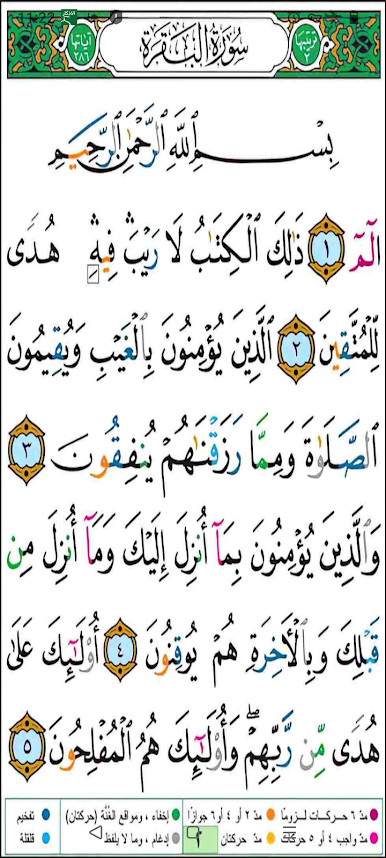 ترتيبها ٢
سُورَةُ الْبَقَرَةِ
آياتها ٢٨٦
بِسْمِ ٱللَّهِ ٱلرَّحْمَٰنِ ٱلرَّحِيمِ
الٓمٓ ١ ذَٰلِكَ ٱلْكِتَٰبُ لَا رَيْبَ ۛ فِيهِ ۛ هُدًى
لِّلْمُتَّقِينَ ٢ ٱلَّذِينَ يُؤْمِنُونَ بِٱلْغَيْبِ وَيُقِيمُونَ
ٱلصَّلَوٰةَ وَمِمَّا رَزَقْنَٰهُمْ يُنفِقُونَ ٣
وَٱلَّذِينَ يُؤْمِنُونَ بِمَآ أُنزِلَ إِلَيْكَ وَمَآ أُنزِلَ مِن
قَبْلِكَ وَبِٱلْأَخِرَةِ هُمْ يُوقِنُونَ ٤ أُوْلَٰٓئِكَ عَلَىٰ
هُدًى مِّن رَّبِّهِمْ ۖ وَأُوْلَٰٓئِكَ هُمُ ٱلْمُفْلِحُونَ ٥
مدّ ٦ حركات لزوماً مدّ ٢ أو ٤ أو ٦ جوازاً إخفاء، ومواقع الغُنَّة (حركتان) تفخيم
مدّ واجب ٤ أو ٥ حركات مدّ حركتان إدغام، وما لا يُلفظ قلقلة
٢